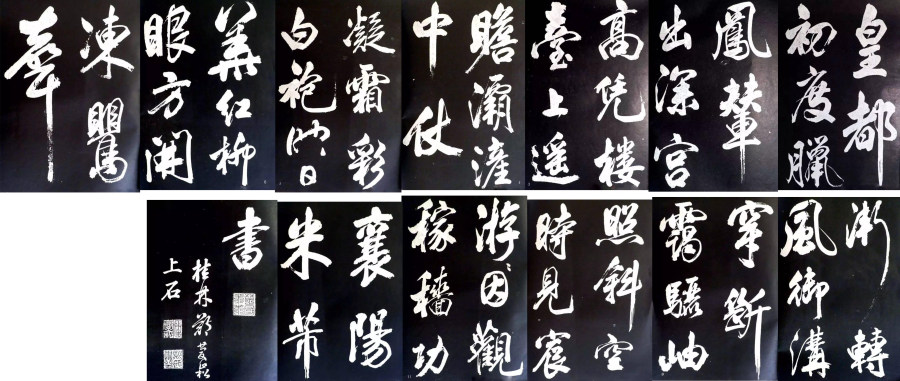 皇都
初度臘
鳳輦
出深宮
高凭楼
臺上遥
瞻灞滻
中仗
凝霜彩
白袍映日
華紅柳
眼方開
凍鶯
聲
漸轉
風御溝
穿斷
靄驪岫
照斜空
時見宸
游因觀
稼穡功
襄陽
米芾
書
桂林
上石